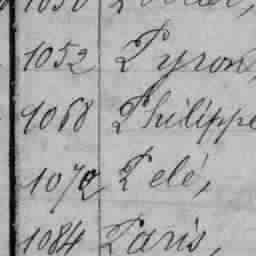 1052 Pyron,
1068 Philippe
1072 Pelé,
1084 Paris,